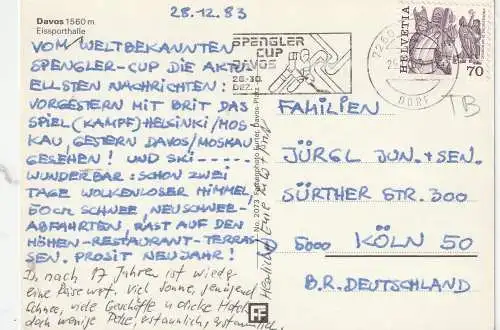 Davos 1560 m
Eissporthalle
28.12.83
VOM WELTBEKANNTEN
SPENGLER-CUP DIE AKTU-
ELLSTEN NACHRICHTEN:
VORGESTERN MIT BRIT DAS
SPIEL (KAMPF) HELSINKI/MOS-
KAU, GESTERN DAVOS/MOSKAU
GESEHEN! UND SKI-----
WUNDERBAR: SCHON ZWEI
TAGE WOLKENLOSER HIMMEL,
50cm SCHNEE, NEUSCHNEE-
ABFAHRTEN, RAST AUF DEN
HÖHEN-RESTAURANT-TERRAS-
SEN. PROSIT NEUJAHR!
Ja, nach 17 Jahren ist wieder
eine Reise wert. Viel Sonne, genügend
Schnee, viele Geschäfte u. dicke Hotels
doch wenige Pelze, erstaunlich, erstaunlich.
Herzlichst Eure
No. 2073 Farbenphoto Furter, Davos-Platz
SPENGLER
CUP
DAVOS
26.-30.
DEZ.
DORF
HELVETIA
70
TB
FAMILIEN
JÜRGL JUN. + SEN.
SÜRTHER STR. 300
5000 KÖLN 50
B.R. DEUTSCHLAND